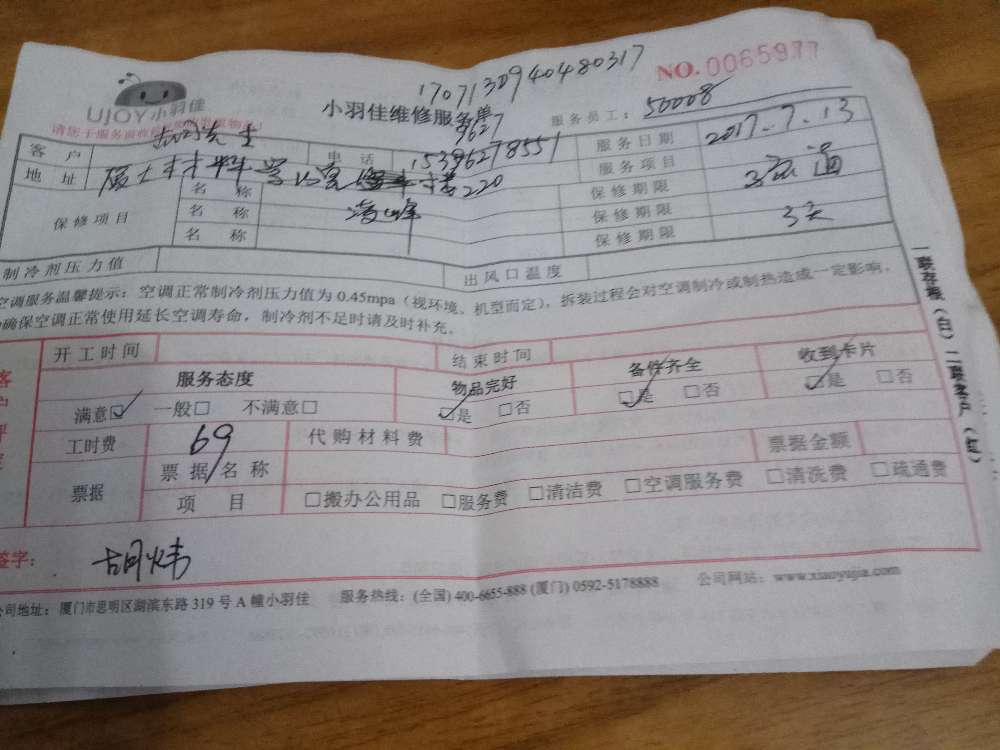 1707130940480317
NO.0065977
UJOY小羽佳
小羽佳维修服务单
服务员工：50008
9627
客户 胡先生 电话 15396278551 服务日期 2017.7.13
地址 厦大材料学 220 服务项目 疏通
保修项目 名称 保修期限 3天
名称 保修期限
名称 保修期限
制冷剂压力值 出风口温度
空调服务温馨提示：空调正常制冷剂压力值为0.45mpa（视环境、机型而定），拆装过程会对空调制冷或制热造成一定影响，
确保空调正常使用延长空调寿命，制冷剂不足时请及时补充。
开工时间 结束时间
服务态度 物品完好 备件齐全 收到卡片
满意☑ 一般□ 不满意□ ☑是 □否 ☑是 □否 ☑是 □否
工时费 69 代购材料费 票据金额
票据 票据名称
项目 □搬办公用品 □服务费 □清洁费 □空调服务费 □清洗费 □疏通费
签字： 胡炜
公司地址：厦门市思明区湖滨东路319号A幢小羽佳 服务热线：(全国) 400-6655-888 (厦门) 0592-5178888 公司网站：www.xiaoyujia.com
一联存根（白）二联客户（红）